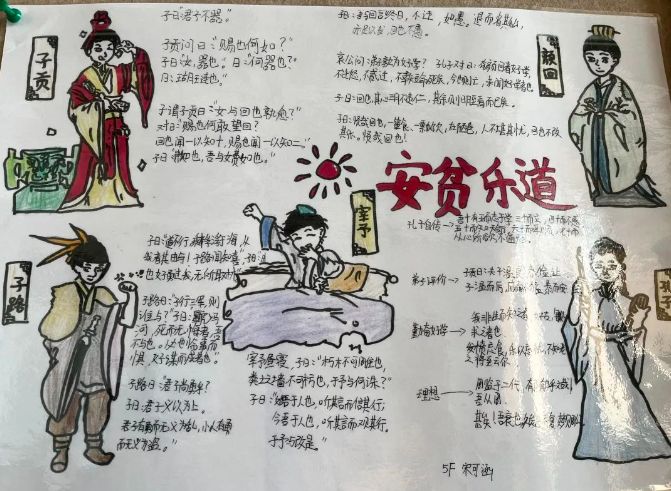 子贡
子曰:"君子不器。"
子贡问曰:"赐也何如?"
子曰:女,器也。"曰:"何器也?"
曰:瑚琏也。"
子谓子贡曰:"女与回也孰愈?"
对曰:"赐也何敢望回?
回也闻一以知十,赐也闻一以知二。"
子曰:"弗如也,吾与女弗如也。"
子曰:吾与回言终日,不违,如愚。退而省其私,
亦足以发,回也不愚。
哀公问:弟子孰为好学?孔子对曰:有颜回者好学,
不迁怒,不贰过,不幸短命死矣,今也则亡,未闻好学者也
子曰:回也,其心三月不违仁,其余则日月至焉而已矣。
子曰:贤哉回也,一箪食,一瓢饮,在陋巷,人不堪其忧,回也不改
其乐。贤哉回也!
颜回
安贫乐道
宰予
子路
子曰:"道不行,乘桴浮于海,从
我者其由与!子路闻之喜,子曰:由
也好勇过我,无所取材
子路曰:"子行三军,则
谁与?"子曰:"暴虎冯
河,死而无悔者,吾
不与也。必也临事而
惧,好谋而成者也。"
子路曰:"君子尚勇乎?
子曰:君子义以为上。
君子有勇而无义为乱,小人有勇
而无义为盗。"
宰予昼寝,子曰:"朽木不可雕也,
粪土之墙不可杇也,于予与何诛?"
子曰:"始吾于人也,听其言而信其行;
今吾于人也,听其言而观其行。
于予与改是。"
孔子自传
吾十有五而志于学,三十而立,四十而不惑
五十而知天命,六十而耳顺,七十而
从心所欲,不逾矩。
弟子评价
勤奋好学
理想
5F 宋可涵